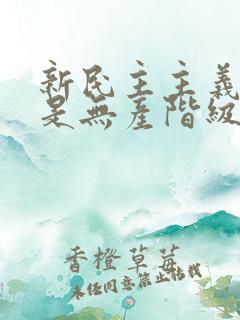 新民主主義
是無產階級
香橙草莓
未经同意禁止转载